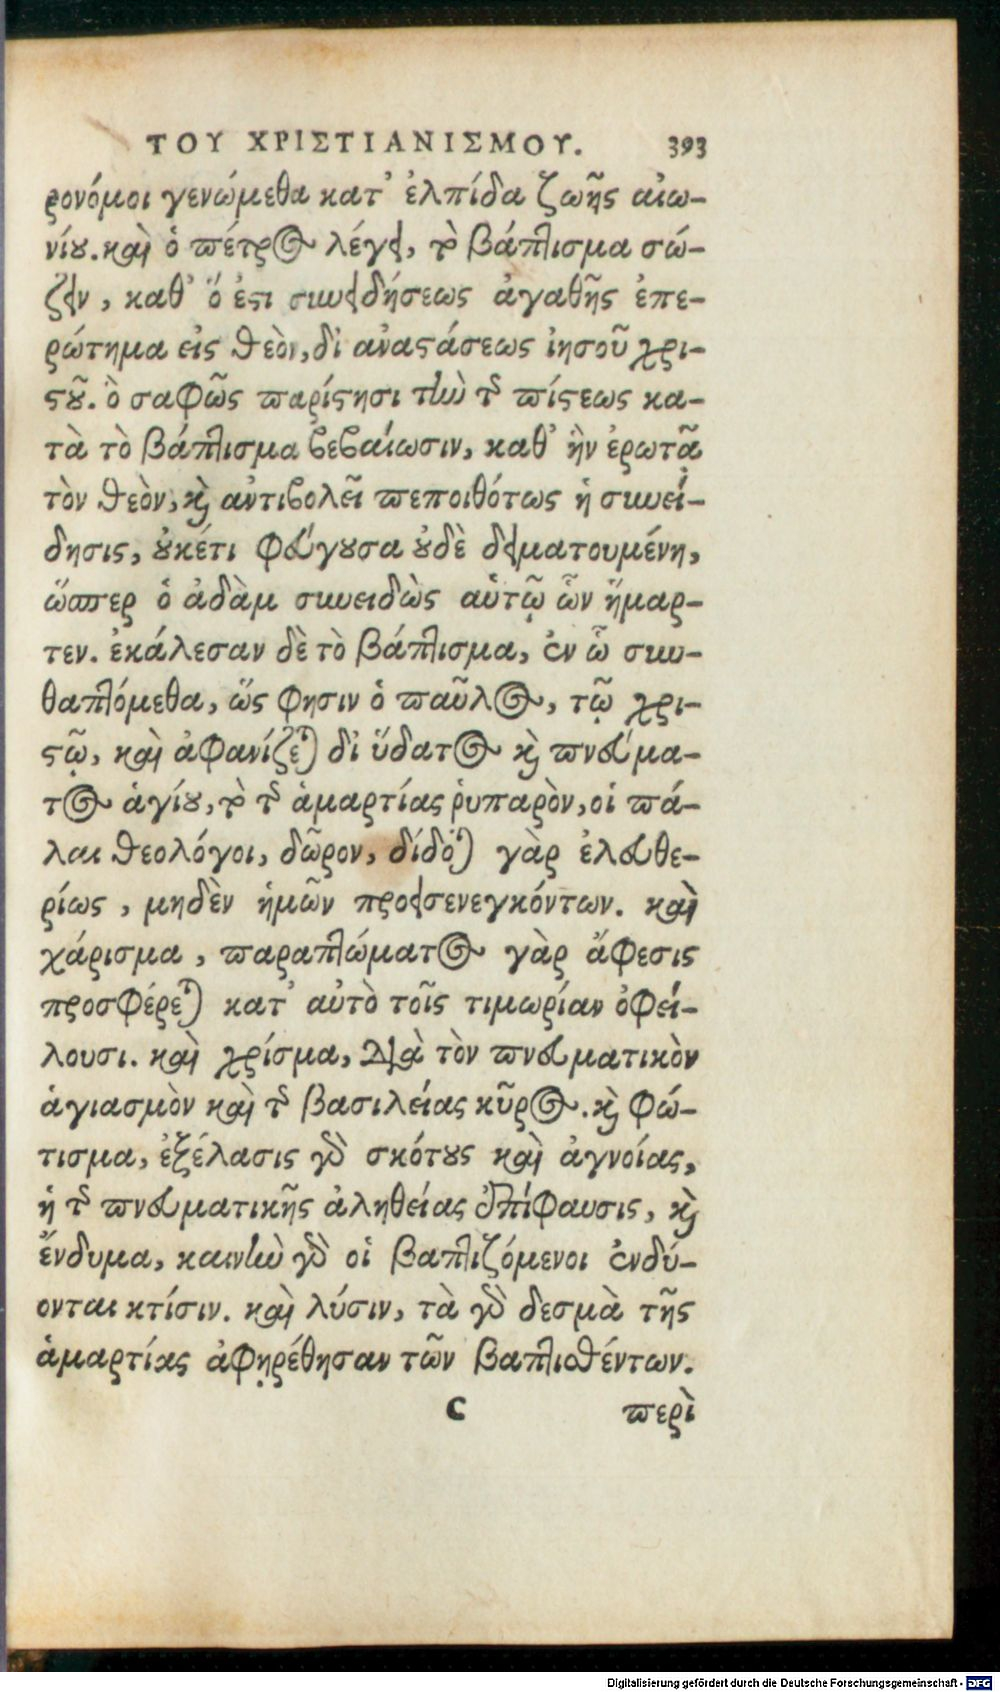 ΤΟΥ ΧΡΙΣΤΙΑΝΙΣΜΟΥ. 393
ρονόμοι γενώμεθα κατ᾽ ἐλπίδα ζωῆς αἰω-
νίου. καὶ ὁ πέτρος λέγει, τὸ βάπτισμα σώ-
ζειν, καθ᾽ ὅ ἐστι συνειδήσεως ἀγαθῆς ἐπε-
ρώτημα εἰς θεὸν, δι ἀναστάσεως ἰησοῦ χρι-
στοῦ. ὃ σαφῶς παρίστησι τὴν τῆς πίστεως κα-
τὰ τὸ βάπτισμα βεβαίωσιν, καθ᾽ ἣν ἐρωτᾶ
τὸν θεὸν, καὶ ἀντιβολεῖ πεποιθότως ἡ συνεί-
δησις, οὐκέτι φεύγουσα οὐδὲ δειματουμένη,
ὥσπερ ὁ ἀδὰμ συνειδὼς αὑτῷ ὧν ἥμαρ-
τεν. ἐκάλεσαν δὲ τὸ βάπτισμα, ἐν ᾧ συν-
θαπτόμεθα, ὥς φησιν ὁ παῦλος, τῷ χρι-
στῷ, καὶ ἀφανίζεται δι ὕδατος καὶ πνεύμα-
τος ἁγίου, τὸ τῆς ἁμαρτίας ῥυπαρὸν, οἱ πά-
λαι θεολόγοι, δῶρον, δίδοται γὰρ ἐλευθε-
ρίως, μηδὲν ἡμῶν προεισενεγκόντων. καὶ
χάρισμα, παραπτώματος γὰρ ἄφεσις
προσφέρεται κατ᾽ αὐτὸ τοῖς τιμωρίαν ὀφεί-
λουσι. καὶ χρίσμα, διὰ τὸν πνευματικὸν
ἁγιασμὸν καὶ τῆς βασιλείας κῦρος. καὶ φώ-
τισμα, ἐξέλασις γὰρ σκότους καὶ ἀγνοίας,
ἡ τῆς πνευματικῆς ἀληθείας ἐπίφαυσις, καὶ
ἔνδυμα, καινὴν γὰρ οἱ βαπτιζόμενοι ἐνδύ-
ονται κτίσιν. καὶ λύσιν, τὰ γὰρ δεσμὰ τῆς
ἁμαρτίας ἀφῃρέθησαν τῶν βαπτισθέντων.
C περὶ
Digitalisierung gefördert durch die Deutsche Forschungsgemeinschaft - DFG